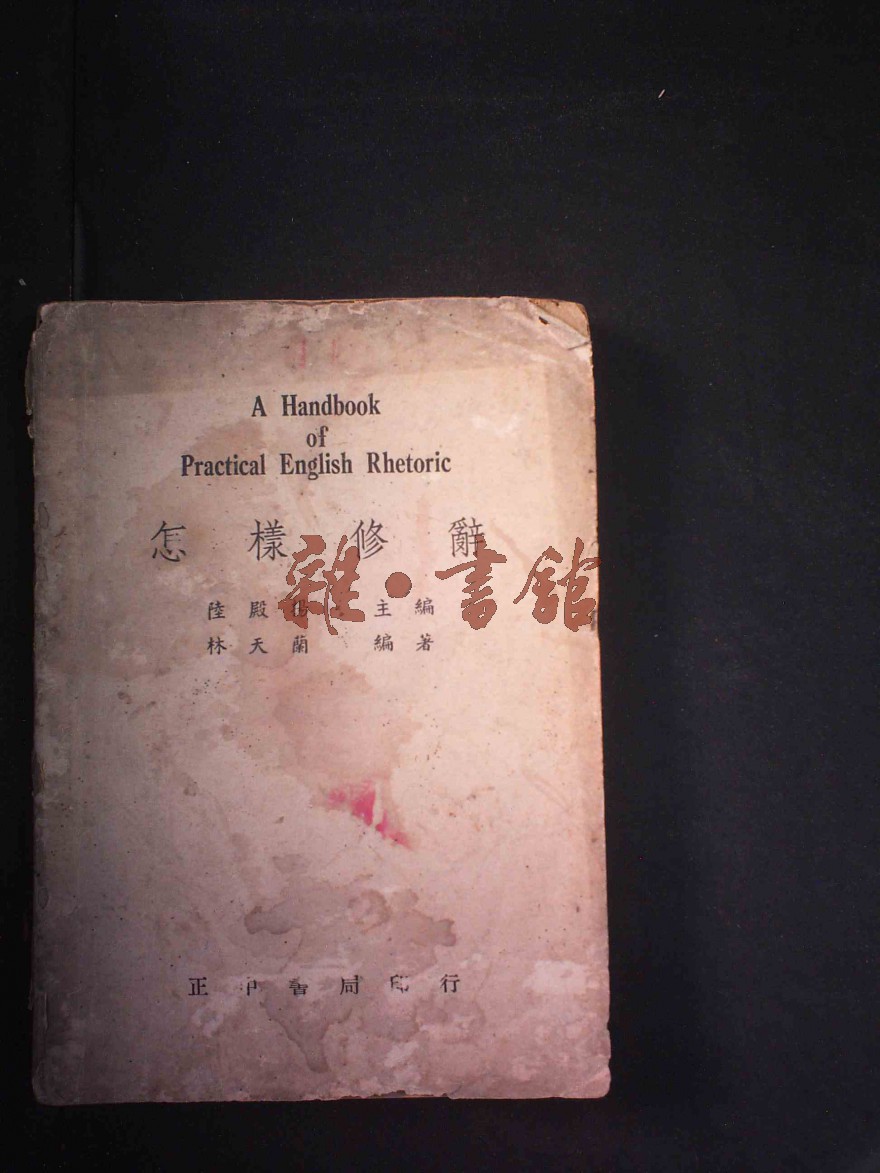 A Handbook
of
Practical English Rhetoric
怎樣修辭
陸殿揚 主編
林天蘭 編著
雜·書館
正中書局印行